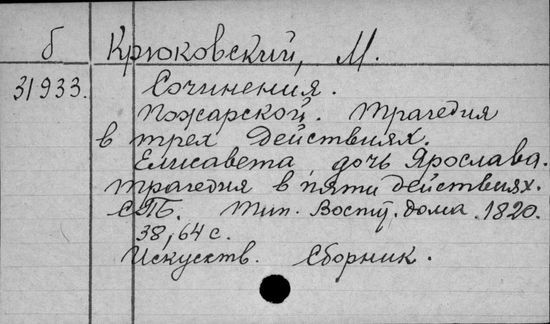 б Крюковский, М.
31933. Сочинения.
Пожарской. Трагедия
в трех действиях.
Елисавета, дочь Ярослава.
Трагедия в пяти действиях.
СПБ. Тип. Воспит. дома. 1820.
38, 64 с.
Искусств. Сборник.